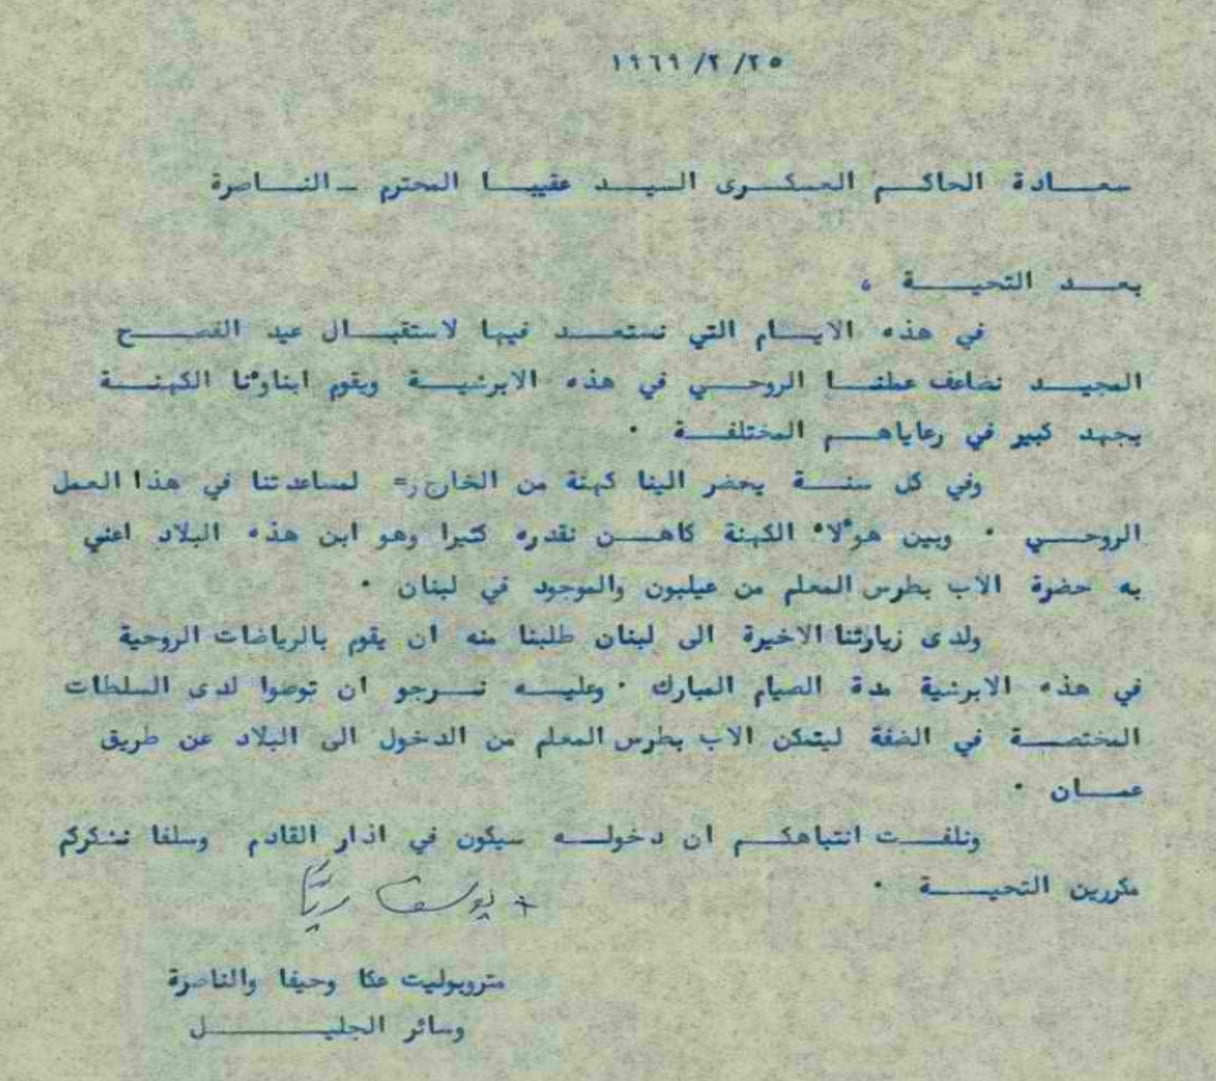 ١٩٦٩/٢/٢٥
سعادة الحاكم العسكرى السيد عقيبا المحترم - الناصرة
بعد التحية ،
في هذه الايام التي نستعد فيها لاستقبال عيد الفصح
المجيد نضاعف عملنا الروحي في هذه الابرشية ويقوم ابناوءنا الكهنة
بجهد كبير في رعاياهم المختلفة .
وفي كل سنة يحضر الينا كهنة من الخارج لمساعدتنا في هذا العمل
الروحي . وبين هوءلاء الكهنة كاهن نقدره كثيرا وهو ابن هذه البلاد اعني
به حضرة الاب بطرس المعلم من عيلبون والموجود في لبنان .
ولدى زيارتنا الاخيرة الى لبنان طلبنا منه ان يقوم بالرياضات الروحية
في هذه الابرشية مدة الصيام المبارك . وعليه نرجو ان توصوا لدى السلطات
المختصة في الضفة ليتمكن الاب بطرس المعلم من الدخول الى البلاد عن طريق
عمان .
ونلفت انتباهكم ان دخوله سيكون في اذار القادم وسلفا نشكركم
مكررين التحية .
+ يوسف ريّا
متروبوليت عكا وحيفا والناصرة
وسائر الجليل